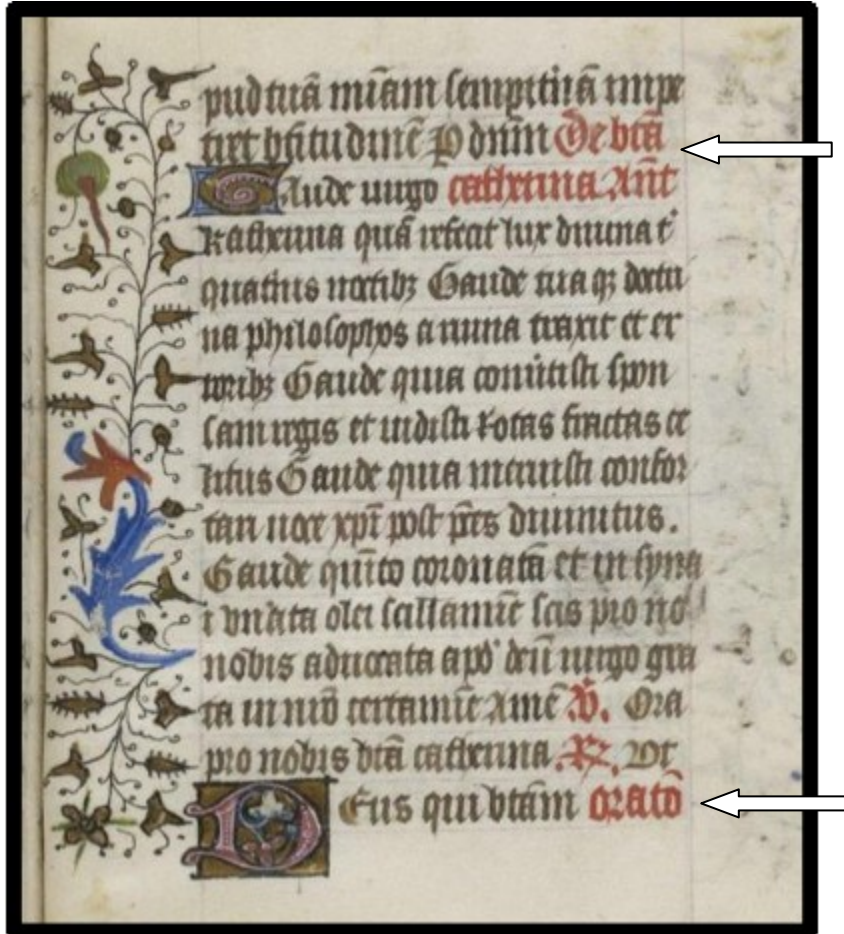 pud tuā miām sempitnā impe
tiret btitudinē P dnm De btā
Gaude uirgo catherina Ant
katherina quā refecit lux diuina t
quatinis noctibȝ Gaude tua qȝ doctri
na philosophos a nuna traxit et er
roribȝ Gaude quia conuitisti spon
sam regis et uidisti Rotas fractas ce
litus Gaude quia meruisti confor
tari uoce xpi post pres diuinitus.
Gaude quīto coronata et in syna
i undata olei scillamīe scis pro no
nobis aduocata apd deū uirgo gra
ta in nro certamīe Amē V. Ora
pro nobis btā catherina. R. Vt
Deus qui btām orato